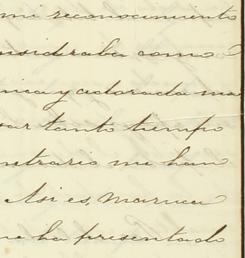 mi reconocimiento
nsideraba como
nica y adorada ma
sar tanto tiempo
ntrario me han
Asi es, Maruca
me ha presentado